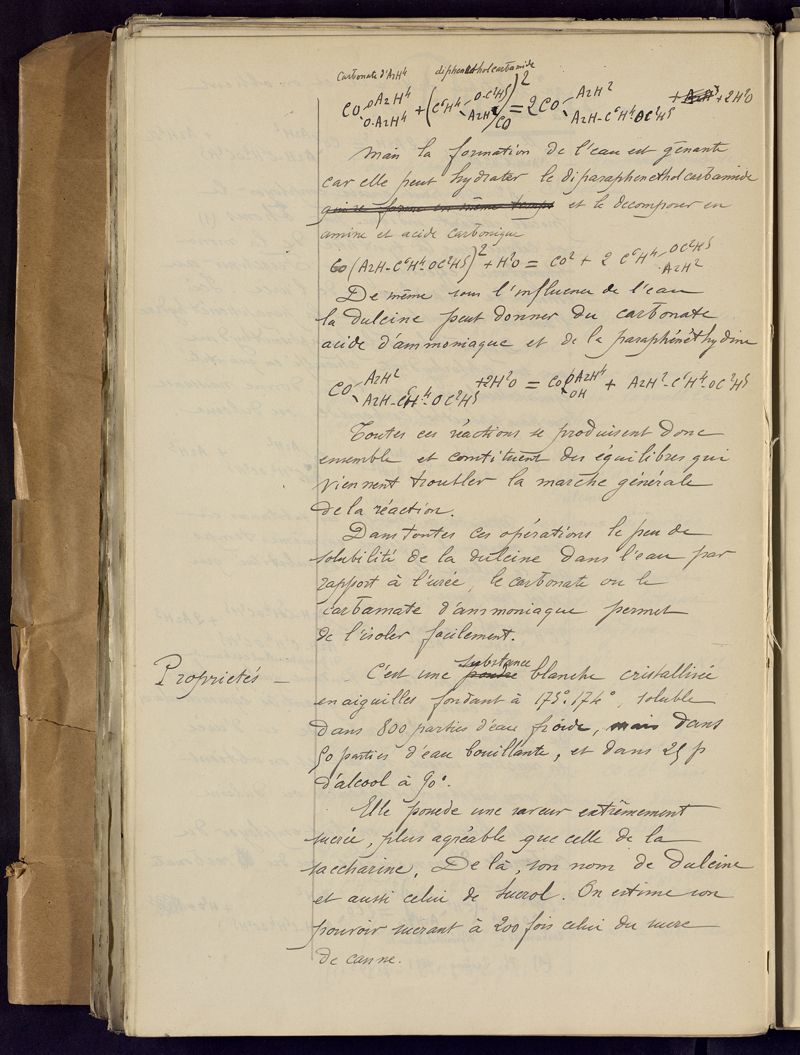 Carbonate d'AzH⁴ diphenetholcarbamide
CO OAzH⁴ O-AzH⁴ + (C⁶H⁴ O-C²H⁵ AzH)² CO = 2CO AzH² AzH-C⁶H⁴ OC²H⁵ + AzH³ + 2H²O
Mais la formation de l'eau est gênante
car elle peut hydrater le diparaphenetholcarbamide
en même temps et le decomposer en
amine et acide carbonique
CO (AzH-C⁶H⁴-OC²H⁵)² + H²O = CO² + 2 C⁶H⁴ OC²H⁵ AzH²
De même sous l'influence de l'eau
la dulcine peut donner du carbonate
acide d'ammoniaque et de la paraphénéthydine
CO AzH² AzH-C⁶H⁴-OC²H⁵ +2H²O = CO OAzH⁴ OH + AzH²-C⁶H⁴-OC²H⁵
Toutes ces réactions se produisent donc
ensemble et constituent des équilibres qui
viennent troubler la marche générale
de la réaction.
Dans toutes ces opérations le peu de
solubilité de la dulcine dans l'eau par
rapport à l'urée, le carbonate ou le
carbamate d'ammoniaque permet
de l'isoler facilement.
Proprietés — C'est une substance poudre blanche cristallisée
en aiguilles fondant à 173°.174°, soluble
dans 800 parties d'eau froide, mais dans
50 parties d'eau bouillante, et dans 25 p
d'alcool à 90°.
Elle possede une saveur extrêmement
sucrée, plus agréable que celle de la
saccharine. De là, son nom de Dulcine
et aussi celui de Sucrol. On estime son
pouvoir sucrant à 200 fois celui du sucre
de canne.